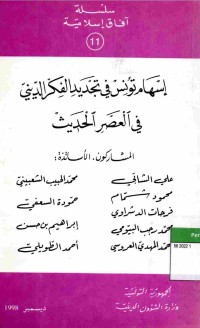 سلسلة
آفاق إسلامية
11
إسهام تونس في تجديد الفكر الديني
في العصر الحديث
المشاركون، الأساتذة:
علي الشابي
محمد الحبيب الشعبيني
محمود شمام
حمودة السعفي
فرحات الدشراوي
إبراهيم بن حسن
محمد رجب البيومي
أحمد الطويلي
محمد المهدي العروسي
الجمهورية التونسية
وزارة الشؤون الدينية
ديسمبر 1998
Per
M 2022 1